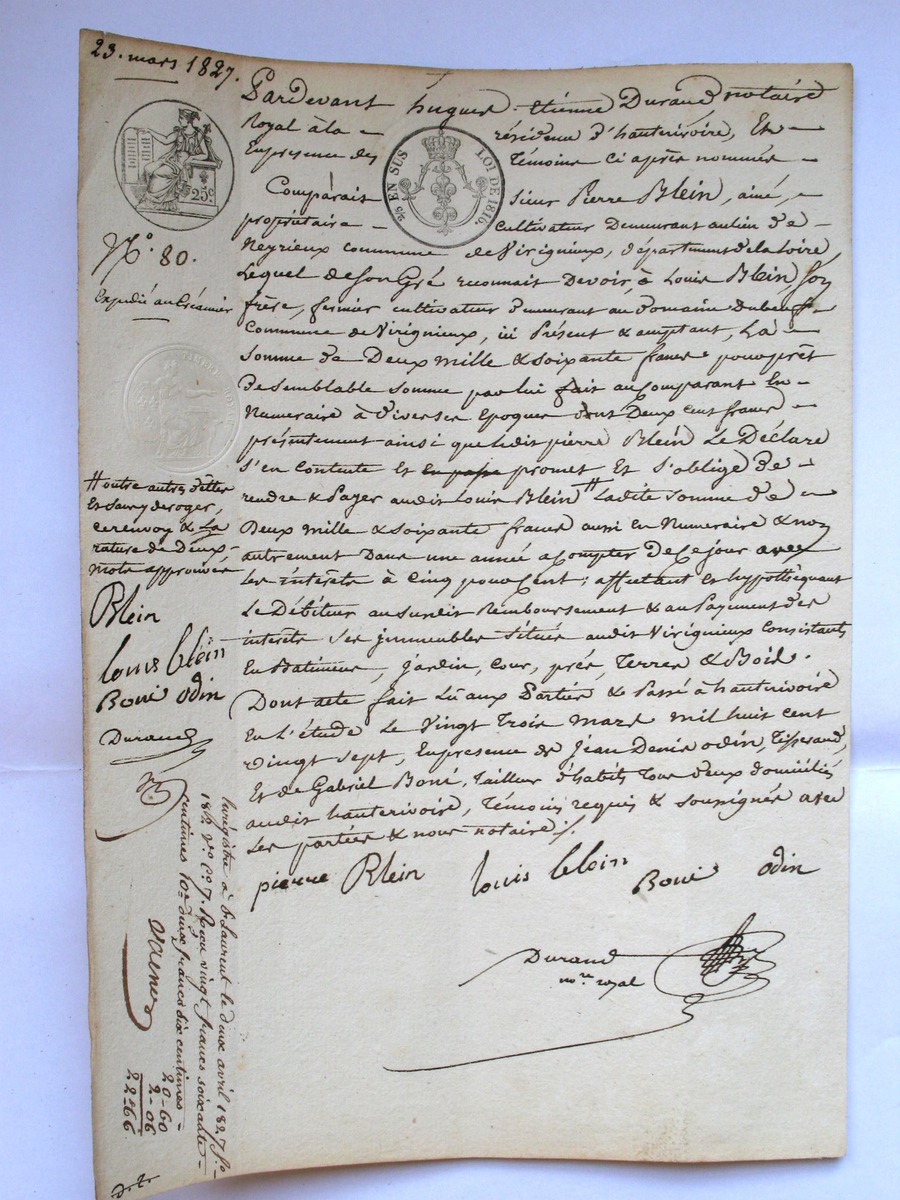 23. mars 1827.
Pardevant hugues-etienne Durand notaire
Royal à la résidence d'hauterivoire, Et
En presence des Témoins ci après nommés
Comparait Sieur Pierre Blein, ainé,
propriétaire Cultivateur Demeurant au lieu de
Neyrieux commune de Virignieux, département de la Loire
Lequel de son Gré reconnait Devoir, à Louis Blein son
frère, fermier cultivateur Demeurant au Domaine Dubeuf
Commune de Virignieux, ici Présent & acceptant, La
Somme de Deux mille & soixante francs pour prêt
de semblable somme par lui fait au Comparant En
Numeraire à Diverses Epoques dont Deux cent francs
présentement ainsi que ledit pierre Blein Le Déclare
s'en Contente Et promet Et s'oblige de
rendre & Payer audit Louis Blein # Ladite Somme de
Deux mille & soixante francs aussi En Numeraire & non
autrement Dans une année à Compter de Ce jour avec
Les intérêts à Cinq pour Cent; affectant Et hypothèquant
Le Débiteur au susdit Remboursement & au Payement des
intérêts Ses immeubles Situés audit Virignieux Consistants
En Batiments, jardin, Cour, prés, Terres & Bois.
Dont acte fait Lu aux Parties & Passé à hauterivoire
En L'étude Le Vingt Trois mars mil huit cent
vingt sept, En presence de Jean Denis odin, Tisserand,
Et de Gabriel Boué, Tailleur d'habits Tous Deux domiciliés
audit hauterivoire, Témoins requis & soussignés avec
Les parties & nous notaire ./.
pierre Blein louis blein Boué odin
Durand
no.re royal
25c
2/5 EN SUS LOI DE 1816.
N.o 80.
Expedié au Créancier
# outre autres d'elles
Et sans y deroger,
ce renvoy & La
rature de Deux
mots approuvés
Blein
louis blein
Boué odin
Durand
Enrégistré à St Laurent le deux avril 1827 f.o
186 v.o c.es 7. Reçu vingt francs soixante
centimes 10.e deux francs six centimes
20-60
2-06
22-66